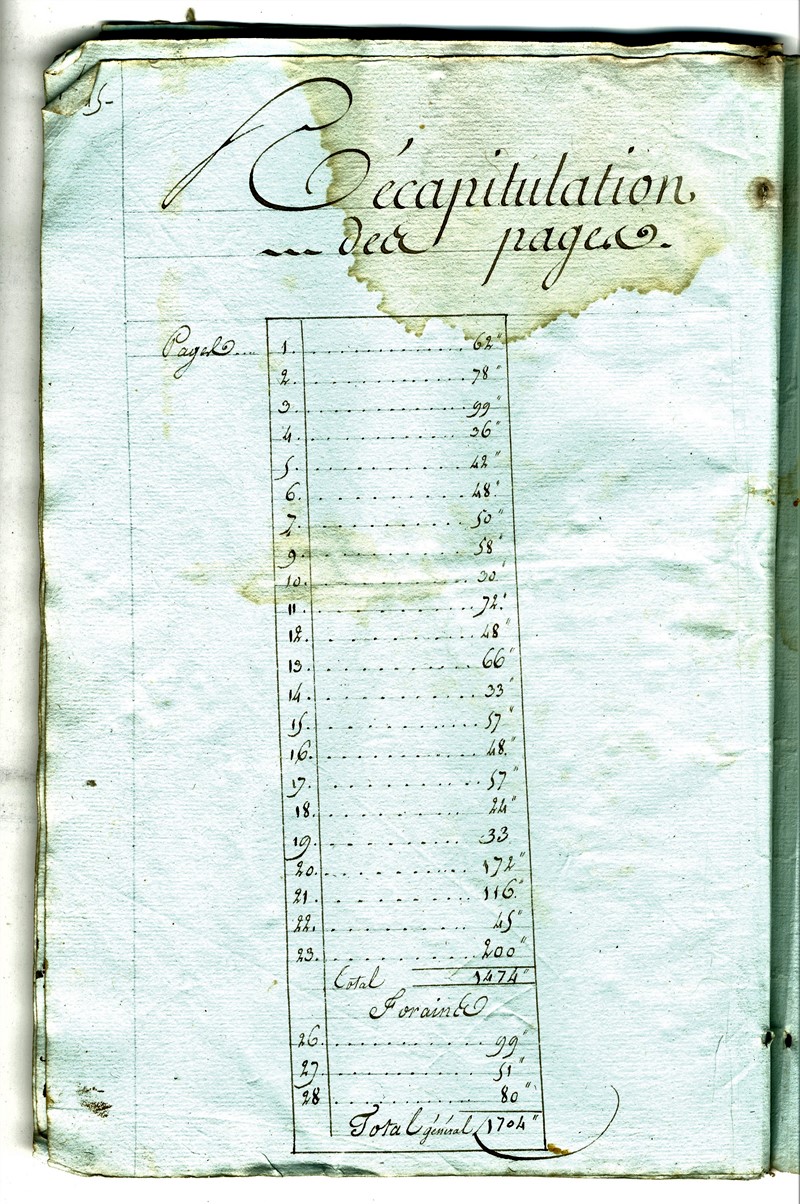 15-
Récapitulation
des pages.
Pages.... 1. .................... 62"
2. .................... 78"
3 .................... 99"
4 .................... 36"
5. .................... 42"
6. .................... 48"
7. .................... 50"
9. .................... 58"
10. .................... 30"
11 .................... 72"
12. .................... 48"
13. .................... 66"
14. .................... 33"
15. .................... 57"
16. .................... 48"
17. .................... 57"
18. .................... 24"
19. .................... 33
20. .................... 172"
21. .................... 116"
22. .................... 45"
23. .................... 200"
Total 1474"
Forains
26. .................... 99"
27. .................... 51"
28 .................... 80"
Total général 1704"